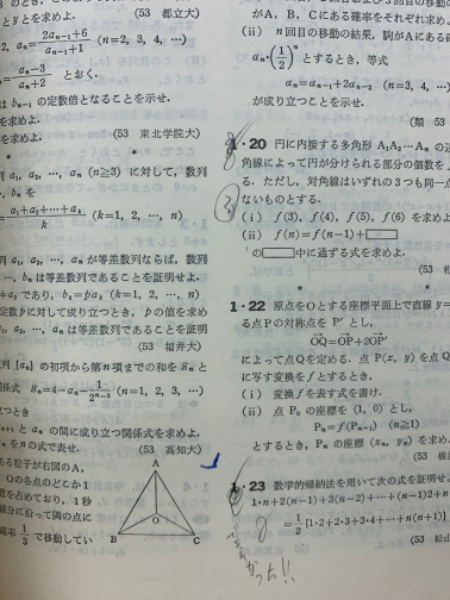 とyとを求めよ. (53 都立大)
2, a_n=\frac{2a_{n-1}+6}{a_{n-1}+1} (n=2, 3, 4, …)
=\frac{a_n-3}{a_n+2} とおく.
は b_{n-1} の定数倍となることを示せ.
を求めよ.
を求めよ. (53 東北学院大)
* *
a_1, a_2, …, a_n (n≧3) に対して, 数列
b_n を
=\frac{a_1+a_2+…+a_k}{k} (k=1, 2, …, n)
a_1, a_2, …, a_n が等差数列ならば, 数列
…, b_n は等差数列であることを証明せよ.
であり, b_k=pa_k (k=1, 2, …, n)
定数pに対して成り立つとき, pの値を求め
a_2, …, a_n は等差数列であることを証明
(53 福井大)
{a_n} の初項から第n項までの和を S_n と
係式 S_n=4-a_n-\frac{1}{2^{n-2}} (n=1, 2, 3, …)
立つとき
と a_n の間に成り立つ関係式を求めよ.
をnの式で表せ. (53 高知大)
ある粒子が右図のA,
Oの各点のどこか1
置を占めており, 1秒
線分に沿って隣の点に
確率 \frac{1}{3} で移動してい
A
O
B
C
がA, B, Cにある確率をそれぞれ求め
(ii) n回目の移動の結果, 駒がAにある確
a_n・(\frac{1}{2})^n とするとき, 等式
a_n=a_{n-1}+2a_{n-2} (n=3, 4, …)
が成り立つことを示せ.
(類 53
1・20 円に内接する多角形 A_1A_2…A_n の
角線によって円が分けられる部分の個数を
る. ただし, 対角線はいずれの3つも同一点
ないものとする.
(i) f(3), f(4), f(5), f(6) を求めよ
(ii) f(n)=f(n-1)+□
の□中に通ずる式を求めよ.
(53
* *
1・22 原点をOとする座標平面上で直線 y=
る点Pの対称点を P′ とし,
OQ=OP+2OP′
によって点Qを定める. 点 P(x, y) を点Q
に写す変換をfとするとき,
(i) 変換fを表す式を書け.
(ii) 点 P_0 の座標を (1, 0) とし,
P_n=f(P_{n-1}) (n≧1)
とするとき, P_n の座標 (x_n, y_n) を求め
(53
1・23 数学的帰納法を用いて次の式を証明せよ
1・n+2(n-1)+3(n-2)+…+(n-1)2+n
=\frac{1}{2}[1・2+2・3+3・4+…+n(n+1)]
(53 松山